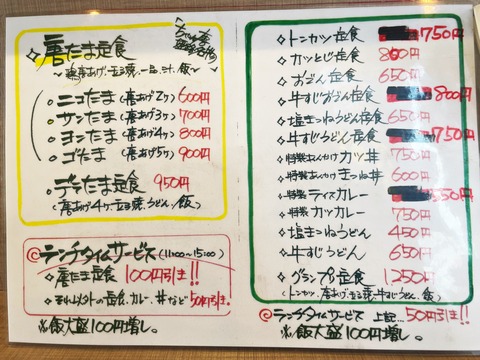 ◇唐たま定食
〜唐あげ、玉子焼、一品、汁、飯〜
・ニコたま(唐あげ2ケ) 600円
・サンたま(唐あげ3ケ) 700円
・ヨンたま(唐あげ4ケ) 800円
・ゴたま(唐あげ5ケ) 900円
・デラたま定食 950円
(唐あげ4ケ、玉子焼、うどん、飯)
◎ランチタイムサービス(11:00〜15:00)
◇唐たま定食 100円引き!!
◇それ以外の定食、カレー、丼など50円引き。
※飯大盛100円増し。
◇トンカツ定食 750円
◇カツとじ定食 800円
◇おでん定食 650円
◇牛すじおでん定食 800円
◇塩きつねうどん定食 650円
◇牛すじうどん定食 750円
◇特製あんかけカツ丼 750円
◇特製あんかけきつね丼 600円
◇特製ライスカレー 550円
◇特製カツカレー 750円
◇塩きつねうどん 450円
◇牛すじうどん 650円
◇グランプリ定食 1250円
(トンカツ、唐あげ、玉子焼、牛すじうどん、飯)
◎ランチタイムサービス 上記 50円引き!!
※飯大盛100円増し。